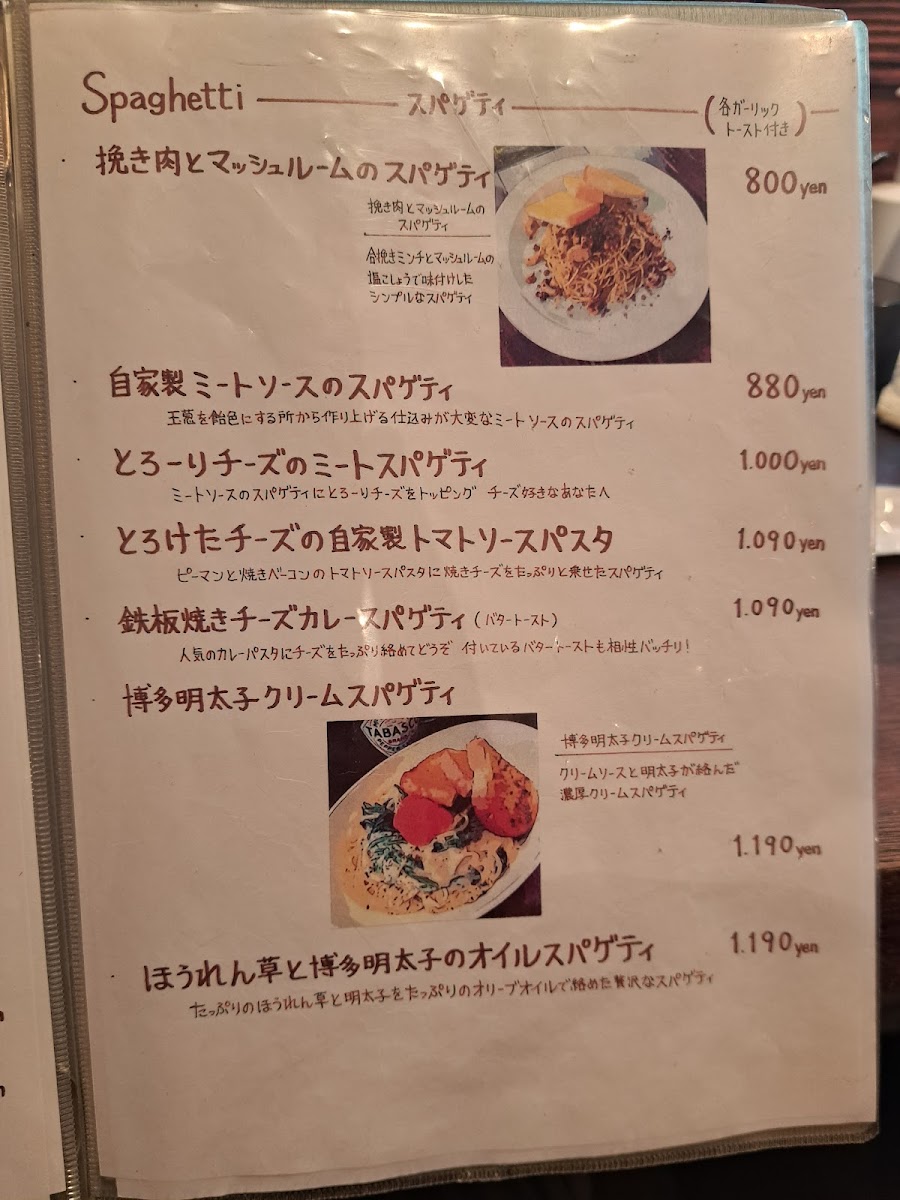 Spaghetti スパゲティ (各ガーリック
トースト付き)
挽き肉とマッシュルームのスパゲティ 800yen
挽き肉とマッシュルームの
スパゲティ
合挽きミンチとマッシュルームの
塩こしょうで味付けした
シンプルなスパゲティ
自家製ミートソースのスパゲティ 880yen
玉葱を飴色にする所から作り上げる仕込みが大変なミートソースのスパゲティ
とろーりチーズのミートスパゲティ 1.000yen
ミートソースのスパゲティにとろーりチーズをトッピング チーズ好きなあなたへ
とろけたチーズの自家製トマトソースパスタ 1.090yen
ピーマンと焼きベーコンのトマトソースパスタに焼きチーズをたっぷりと乗せたスパゲティ
鉄板焼きチーズカレースパゲティ(バタートースト) 1.090yen
人気のカレーパスタにチーズをたっぷり絡めてどうぞ 付いているバタートーストも相性バッチリ!
博多明太子クリームスパゲティ
TABASCO
PEPPER
博多明太子クリームスパゲティ
クリームソースと明太子が絡んだ
濃厚クリームスパゲティ
1.190yen
ほうれん草と博多明太子のオイルスパゲティ 1.190yen
たっぷりのほうれん草と明太子をたっぷりのオリーブオイルで絡めた贅沢なスパゲティ